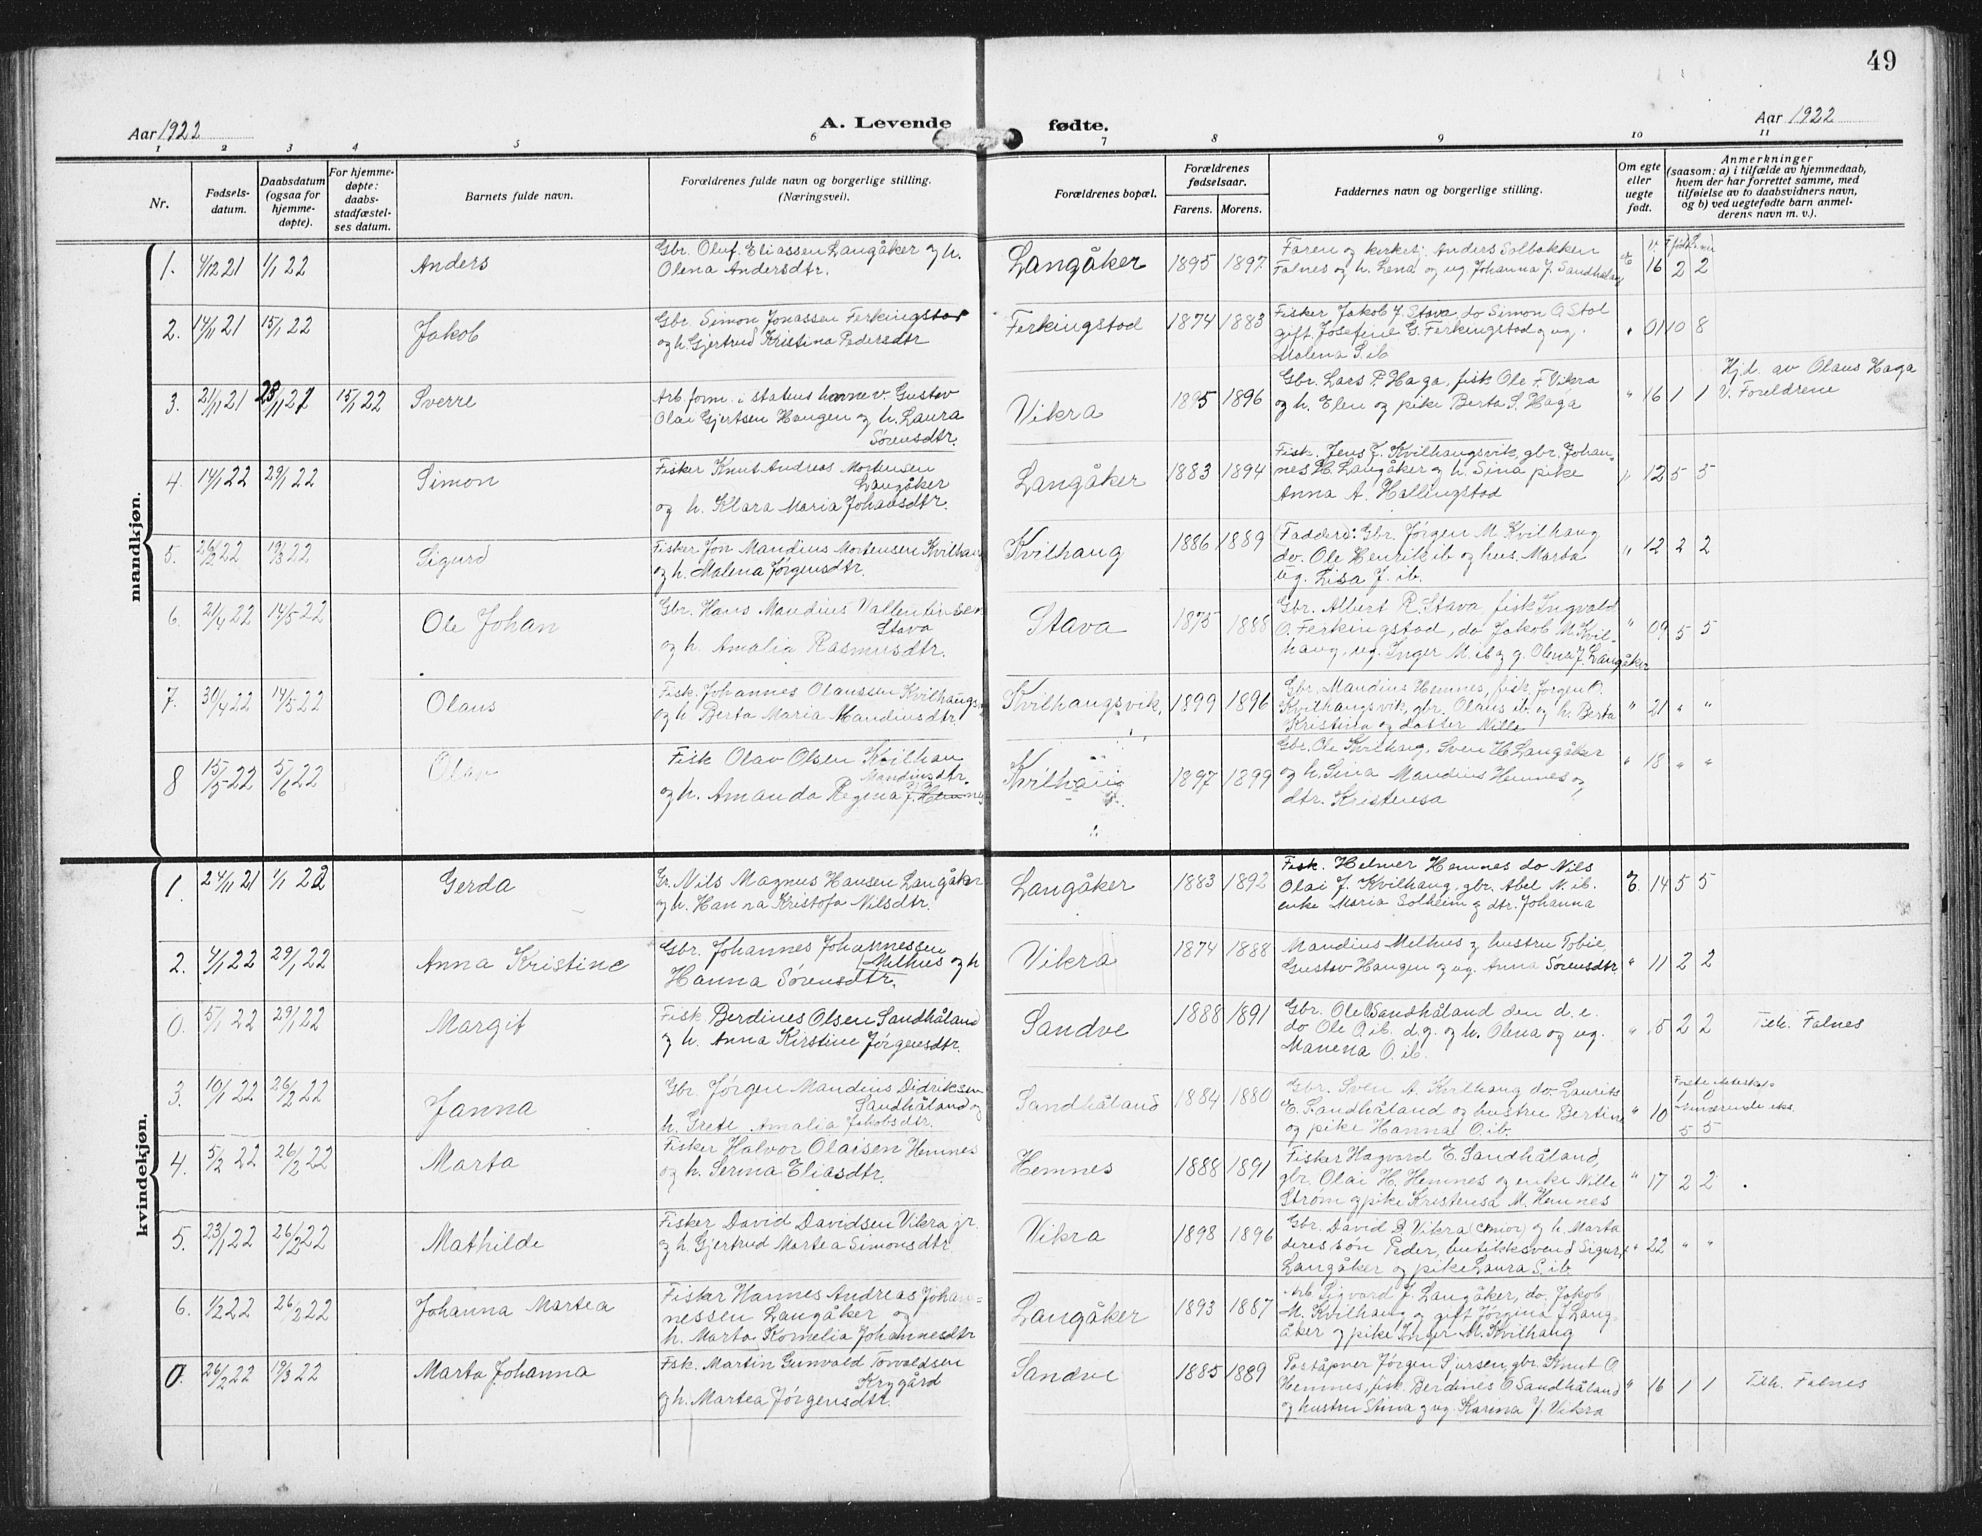 49
Aar 1922
A. Levende fødte.
Aar 1922
1 2 3 4 5 6 7 8 9 10 11
Nr.
Fødsels-
datum.
Daabsdatum
(ogsaa for
hjemme-
døpte).
For hjemme-
døpte:
daabs-
stadfæstel-
ses datum.
Barnets fulde navn.
Forældrenes fulde navn og borgerlige stilling.
(Næringsvei).
Forældrenes bopæl.
Forældrenes
fødselsaar.
Farens. Morens.
Faddernes navn og borgerlige stilling.
Om egte
eller
uegte
født.
Anmerkninger
(saasom: a) i tilfælde av hjemmedaab,
hvem der har forrettet samme, med
tilføielse av to daabsvidners navn,
og b) ved uegtefødte barn anmel-
derens navn m. v.).
mandkjøn.
1. 4/12 21 1/1 22 Anders
Gbr. Oluf Eliassen Langåker og h.
Olena Andersdtr.
Langåker 1895 1897
Faren og kirkesj. Anders Solbakken
Falnes og h. Lena og ug. Johanna J. Sandhåland
16 2 2
2. 14/11 21 15/1 22 Jakob
Gbr. Simon Jonassen Ferkingstad
og h. Gjertrud Kristina Pedersdtr
Ferkingstad 1874 1883
Fisker Jakob J. Stava, do Simon O. Stol
gift Josefine G. Ferkingstad og ug.
Malena S. ib
" 01 10 8
3. 21/11 21 23/11 21 15/1 22 Sverre
Arb. form. i statens havnev. Gustav
Olai Gjertsen Haugen og h. Laura
Sørensdtr.
Vikra 1895 1896
Gbr. Lars P. Haga, fisk Ole F. Vikra
og h. Elen og pike Berta S. Haga
" 16 1 1
Hjd. av Olaus Haga
V. Foreldrene
4. 14/1 22 29/1 22 Simon
Fisker Knut Andreas Mortensen
Langåker
og h. Klara Maria Johansdtr.
Langåker 1883 1894
Fisk. Jens J. Kvilhaugsvik, gbr. Johan-
nes H. Langåker og h. Sina pike
Anna A. Hallingstad
" 12 5 5
5. 26/2 22 19/3 22 Sigurd
Fisker Jon Mandius Mortensen Kvilhaug
og h. Malena Jørgensdtr.
Kvilhaug 1886 1889
(Fadderd: Gbr. Jørgen M. Kvilhaug
do. Ole Henrik ib og hus. Marta
ug. Lisa J. ib.
" 12 2 2
6. 21/4 22 14/5 22 Ole Johan
Gbr. Hans Mandius Vallentinsen
Stava
og h. Amalia Rasmusdtr.
Stava 1875 1888
Gbr. Albert R. Stava, fisk Ingvald
O. Ferkingstad, do Jakob M. Kvil-
haug, ug. Inger M. ib og g. Olena J. Langåker
" 09 5 5
7. 30/4 22 14/5 22 Olaus
Fisk. Johannes Olaussen Kvilhaugs
og h. Berta Maria Mandiusdtr.
Kvilhaugsvik. 1899 1896
Gbr. Mandius Hemnes, fisk. Jørgen O.
Kvilhaugsvik, gbr. Olaus ib. og h. Berta
Kristina og datter Nille
" 21 " "
8 15/5 22 5/6 22 Olav
Fisk Olav Olsen Kvilhau
Mandiusdtr.
og h. Amanda Regina J. Hemnes
Kvilhaug 1897 1899
Gbr. Ole Kvilhaug, Sven H. Langåker
og h. Sina Mandius Hemnes og
dtr. Kristensa
" 18 " "
kvindekjøn.
1. 24/11 21 1/1 22 Gerda
Gr. Nils Magnus Hansen Langåker
og h. Hanna Kristofa Nilsdtr.
Langåker 1883 1892
Fisk. Helmer Hemnes do Nils
Olai J. Kvilhaug, gbr. Abel N. ib.
enke Maria Solheim og dtr. Johanna
E. 14 5 5
2. 4/1 22 29/1 22 Anna Kristine
Gbr. Johannes Johannessen
Melhus og h
Hanna Sørensdtr.
Vikra 1874 1888
Mandius Melhus og hustru Tobie,
Gustav Haugen og ug. Anna Sørensdtr
" 11 2 2
0. 5/1 22 29/1 22 Margit
Fisk Berdines Olsen Sandhåland
og h. Anna Kirstine Jørgensdtr.
Sandve 1888 1891
Gbr. Ole Sandhåland den d. e.
do Ole O. ib. d. y. og h. Olena og ug.
Manena O. ib.
" 15 2 2 Tilh. Falnes
3. 10/1 22 26/2 22 Janna
Gbr. Jørgen Mandius Didriksen
Sandhåland og
h. Grete Amalia Jakobsdtr.
Sandhåland 1884 1880
Gbr. Sven A. Kvilhaug do. Laurits
E. Sandhåland og hustru Bertine
og pike Hanna O. ib.
" 10
Første ekteskab
1 0
Nuværende eks.
5 5
4. 5/2 22 26/2 22 Marta
Fisker Halvor Olaisen Hemnes
og h. Serina Eliasdtr.
Hemnes 1888 1891
Fisker Hagvard E. Sandhåland,
gbr. Olai H. Hemnes og enke Nille
Strøm og pike Kristensa M. Hemnes
" 17 2 2
5. 23/1 22 26/2 22 Mathilde
Fisker David Davidsen Vikra jr.
og h. Gjertrud Martea Simonsdtr
Vikra 1898 1896
Gbr. David B. Vikra (senior) og h. Marta
deres søn Peder, butikksvend Sigurd
Langåker og pike Laura S. ib
" 22 " "
6. 1/2 22 26/2 22 Johanna Martea
Fisker Hannes Andreas Johan-
nessen Langåker og
h. Marta Kornelia Johannesdtr
Langåker 1893 1887
Arb. Sigvard J. Langåker, do. Jakob
M. Kvilhaug og gift Jørgina J. Lang-
åker og pike Inger M. Kvilhaug
0. 26/2 22 19/3 22 Marta Johanna
Fsk. Martin Gunvald Torvaldsen
Krygård
og h. Martea Jørgensdtr.
Sandve 1885 1889
Poståpner Jørgen Sjursen, gbr. Knut O.
Hemnes, fisk. Berdines O. Sandhåland
og hustru Anna og ug. Karina J. Vikra
" 16 1 1 Tilh. Falnes